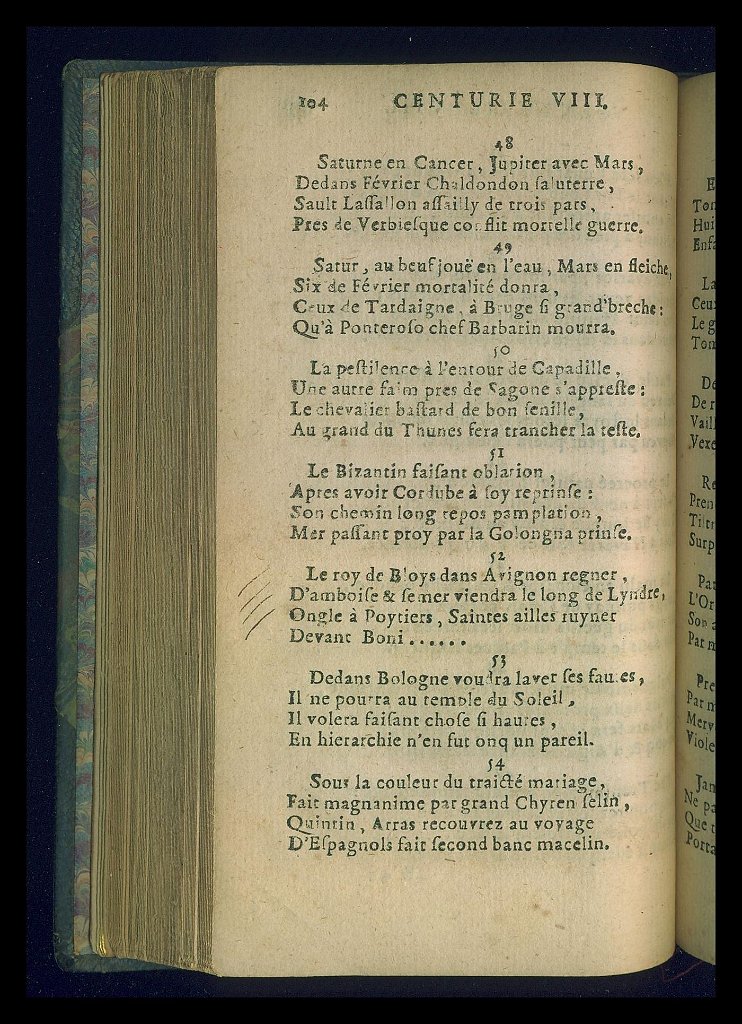 104 CENTURIE VIII.
48
Saturne en Cancer, Jupiter avec Mars,
Dedans Février Chaldondon ſaluterre,
Sault Laſſallon aſſailly de trois pars,
Pres de Verbieſque conflit mortelle guerre.
49
Satur, au beuf jouë en l'eau, Mars en fleiche,
Six de Février mortalité donra,
Ceux de Tardaigne, à Bruge ſi grand breche:
Qu'à Ponteroſo chef Barbarin mourra.
50
La peſtilence à l'entour de Capadille,
Une autre faim pres de Sagone s'appreſte:
Le chevalier baſtard de bon ſenille,
Au grand du Thunes ſera trancher la teſte.
51
Le Bizantin faiſant oblation,
Apres avoir Cordube à ſoy reprinſe:
Son chemin long repos pamplation,
Mer paſſant proy par la Golongna prinſe.
52
Le roy de Bloys dans Avignon regner,
D'amboiſe & ſemer viendra le long de Lyndre,
Ongle à Poytiers, Saintes ailles ruyner
Devant Boni......
53
Dedans Bologne voudra laver ſes fautes,
Il ne pourra au temple du Soleil,
Il volera faiſant choſe ſi hautes,
En hierarchie n'en fut onq un pareil.
54
Sous la couleur du traicté mariage,
Fait magnanime par grand Chyren ſelin,
Quintin, Arras recouvrez au voyage
D'Eſpagnols fait ſecond banc macelin.
Ton
Hui
Enfa
La
Ceux
Le g
Tom
De
De r
Vail
Vexe
Re
Pren
Tiltr
Surp
Par
L'Or
Son a
Par m
Pre
Par m
Merv
Viole
Jan
Ne pa
Que t
Porta